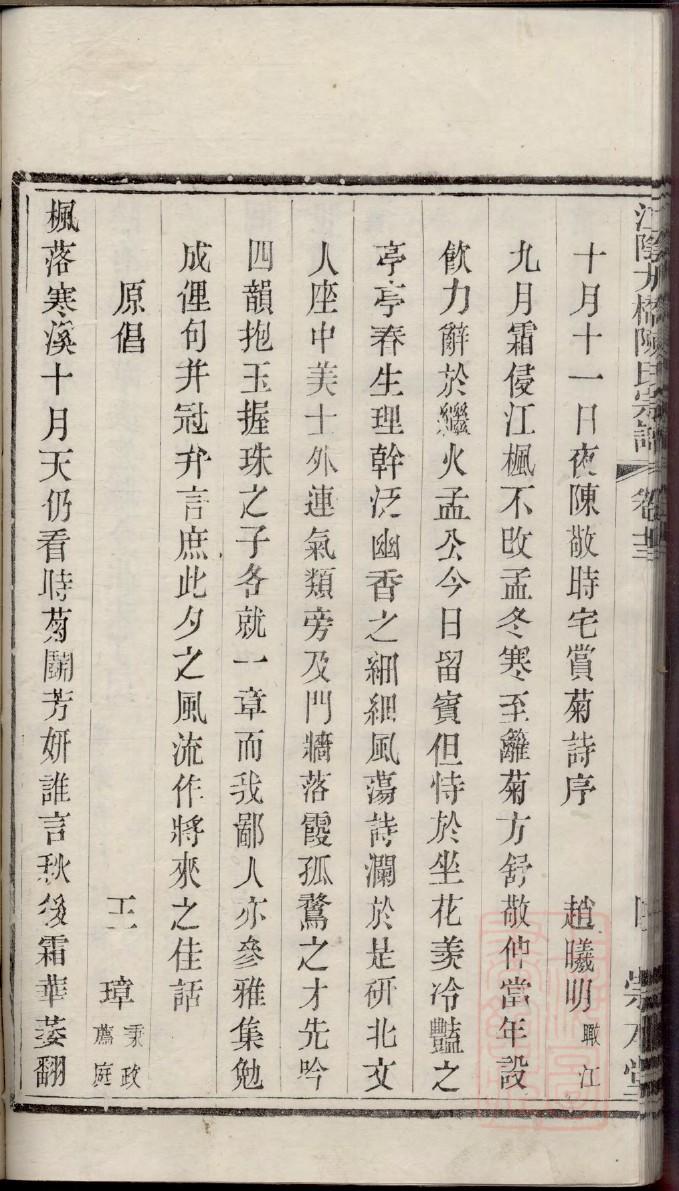 江陰九橋陳氏宗譜 卷 崇 堂
十月十一日夜陳敬時宅賞菊詩序 趙曦明瞰江
九月霜侵江楓不改孟冬寒至籬菊方舒敬仲當年設
飲力辭於繼火孟公今日留賓但恃於坐花羨冷豔之
亭亭春生理幹泛幽香之細細風蕩詩瀾於是研北文
人座中美士外連氣類旁及門牆落霞孤鶩之才先吟
四韻抱玉握珠之子各就一章而我鄙人亦參雅集勉
成俚句并冠弁言庶此夕之風流作將來之佳話
原倡 王璋秉政薦庭
楓落寒溪十月天仍看時菊鬬芳妍誰言秋後霜華萎翻